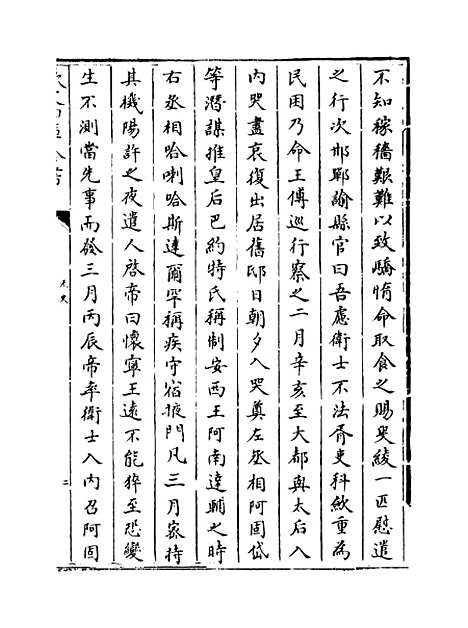 不知稼穡艱難以致驕惰命取食之賜吳綾一匹慰遣
之行次邯鄲諭縣官曰吾慮衛士不法胥吏科斂重為
民困乃命王傅巡行察之二月辛亥至大都與太后入
内哭盡哀復出居舊邸日朝夕入哭奠左丞相阿固岱
等潛謀推皇后巴約特氏稱制安西王阿南達輔之時
右丞相哈喇哈斯達爾罕稱疾守宿掖門凡三月密持
其機陽許之夜遣人啓帝曰懷寧王遠不能猝至恐變
生不測當先事而發三月丙辰帝率衛士入内召阿固
元史
二